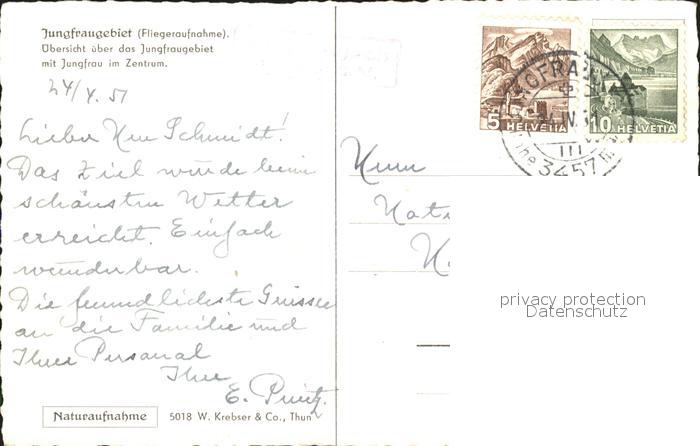 Jungfraugebiet (Fliegeraufnahme).
Übersicht über das Jungfraugebiet
mit Jungfrau im Zentrum.
24/4. 51
Lieber Herr Schmidt!
Das Ziel wurde beim
schönsten Wetter
erreicht. Einfach
wunderbar.
Die freundlichste Grüsse
an die Familie und
Ihrer Personal
Ihre
E.
Naturaufnahme
5018 W. Krebser & Co., Thun
5
HELVETIA
10
HELVETIA
3457 m
Herrn
privacy protection
Datenschutz